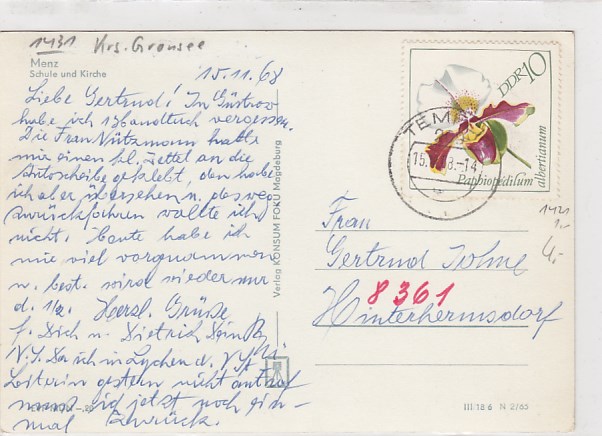 1431 Krs. Gransee
Menz
Schule und Kirche
15.11.68
Liebe Gertrud! In Güstrow
habe ich 1 Handtuch vergessen.
Die Frau Nützmann hatte
mir einen kl. Zettel an die
Autoscheibe geklebt, den habe
ich aber übersehen u. deswegen
zurückfahren wollte ich
nicht. Heute habe ich
mir viel vorgenommen
u. best. wird wieder nur
d. 1/2. Herzl. Grüße
f. Dich u. Dietrich Dein
N.S. Da ich in Lychen d.
Leiterin gestern nicht antraf
muss ich jetzt noch ein-
mal zurück.
Verlag KONSUM FOKU Magdeburg
DDR 10
Paphiopedilum
albertianum
TEM
15. 8.-14
1431
Frau
Gertrud
8361
Hinterhermsdorf
III/18/6 N 2/65